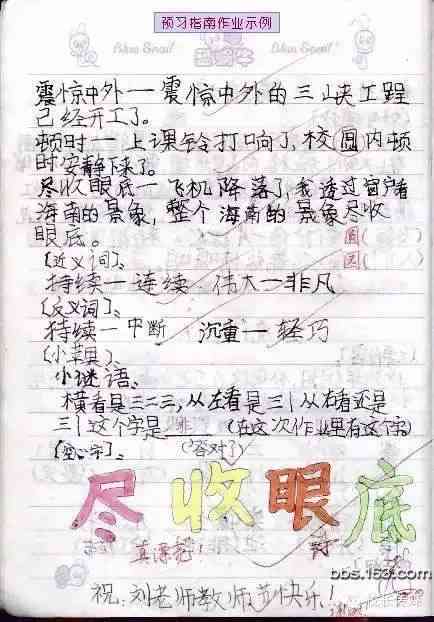 预习指南作业示例
Blue Snail
Blue Snail
震惊中外—震惊中外的三峡工程
己经开工了。
顿时—上课铃打响了,校圆内顿
时安静下来了。
尽收眼底—飞机降落了,我透过窗户看
海南的景象,整个海南的景象尽收
眼底。
圆(
园(
〔近义词〕、
持续—连续 伟大—非凡
〔反义词〕、
持续—中断 沉重—轻巧
〔小草具〕、
小谜语、
横看是三二三,从左看是三丨从右看还是
三丨这个字是 非 (在这次作业里有这个字)
(答对了)
尽收眼底
真漂亮!
好
bbs.163.com
祝:刘老师教师节快乐!
谢谢